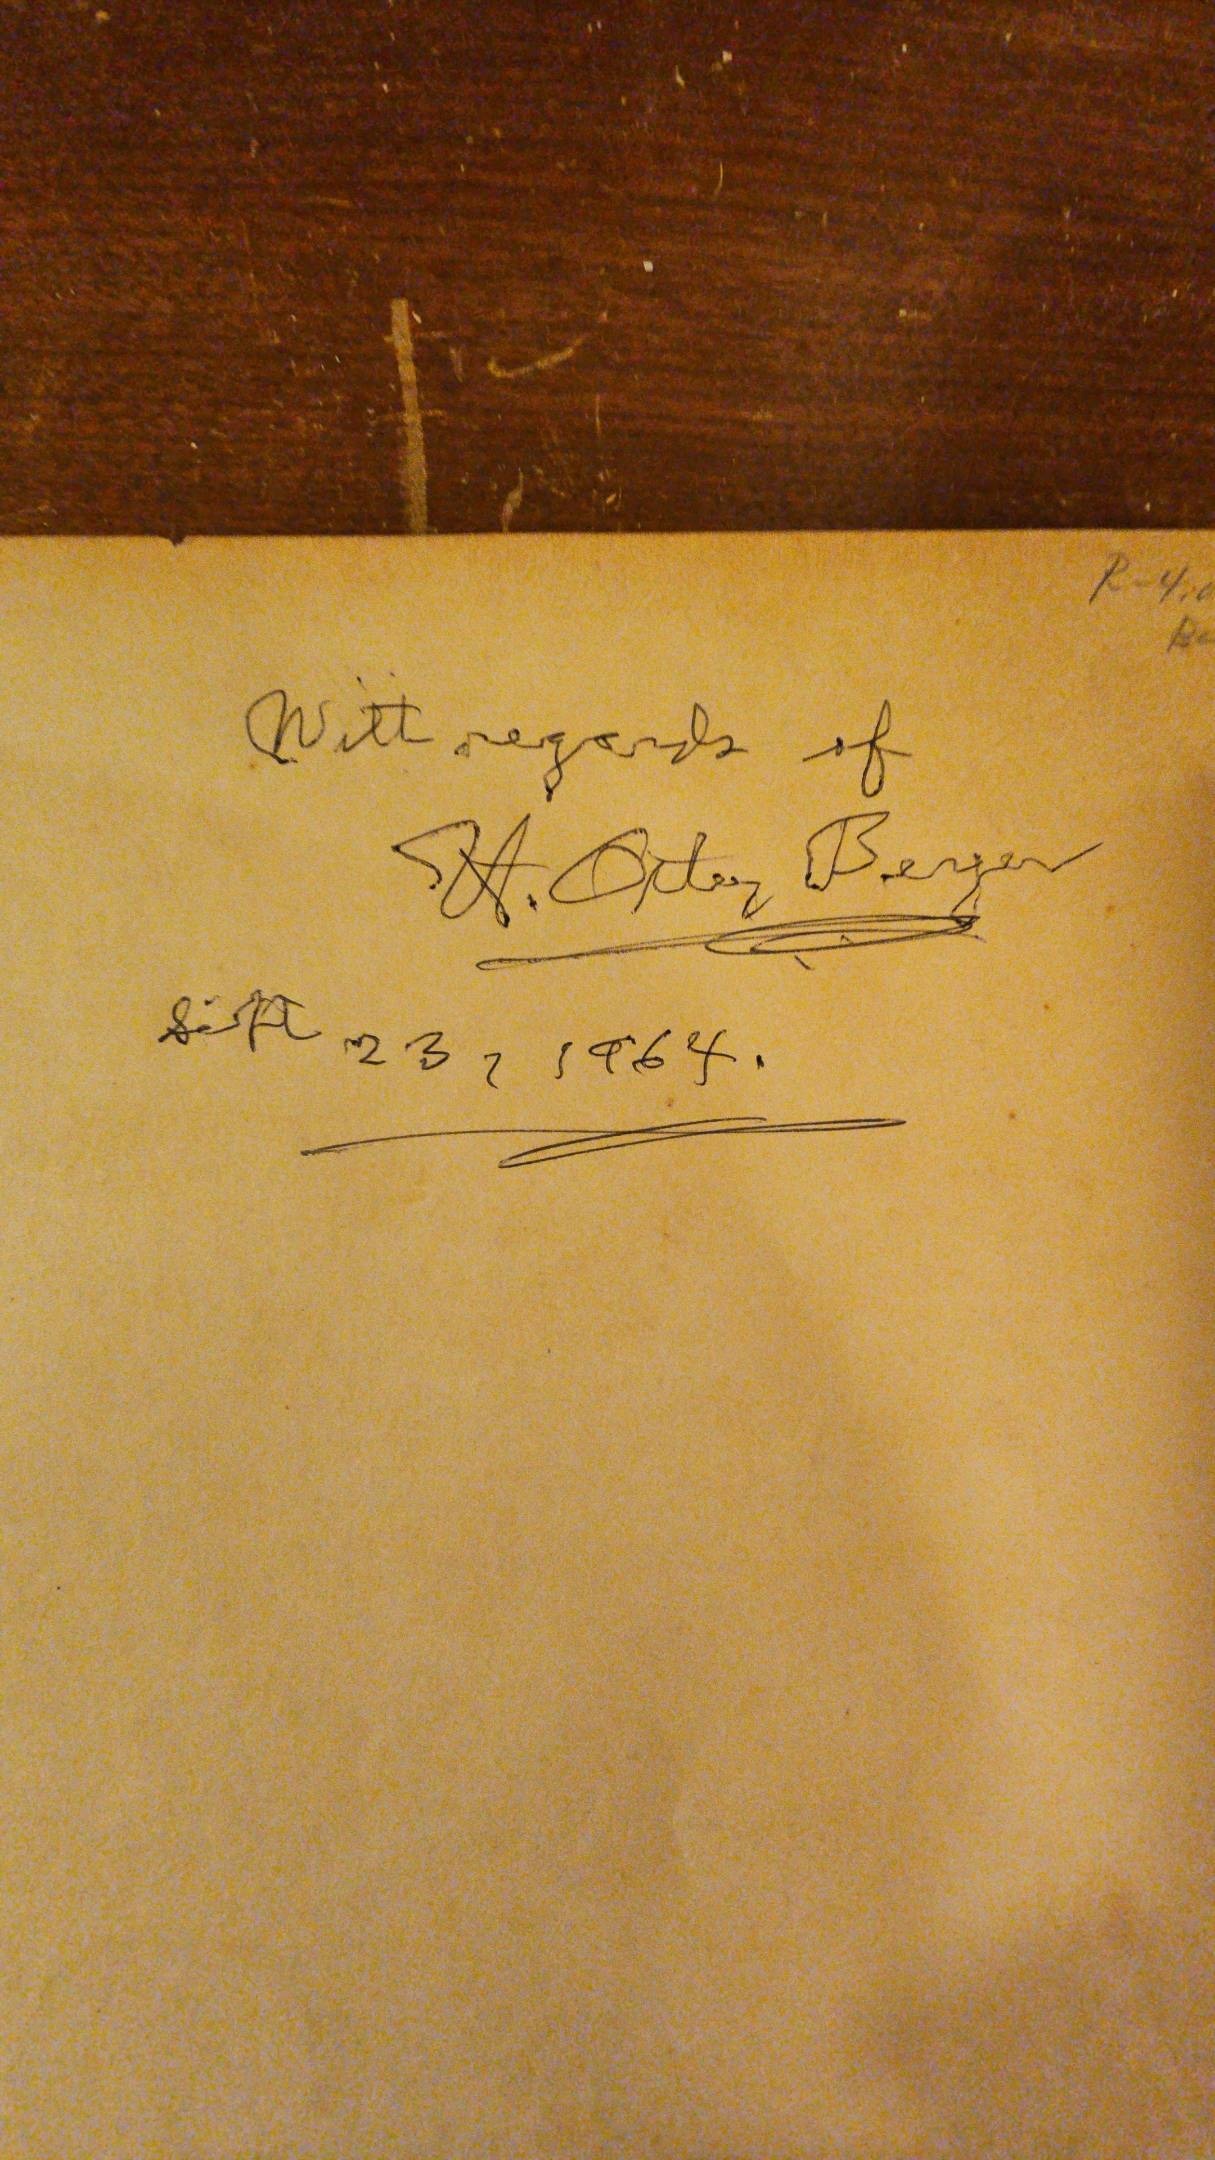 R-4.
With regards of
H. Otley Berger
Sept 23, 1964.